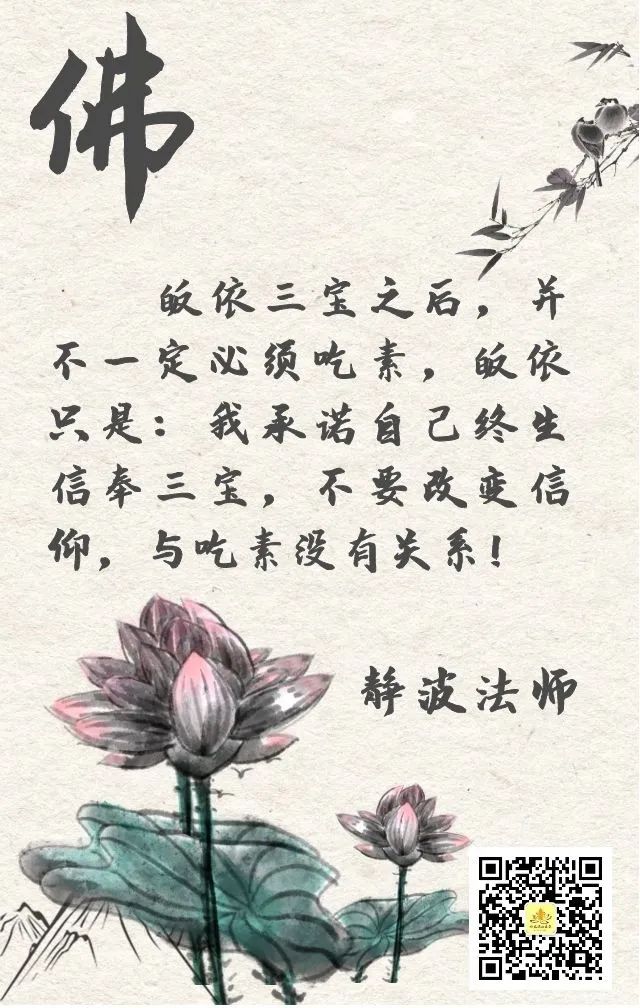 佛
皈依三宝之后，并
不一定必须吃素，皈依
只是：我承诺自己终生
信奉三宝，不要改变信
仰，与吃素没有关系！
静波法师